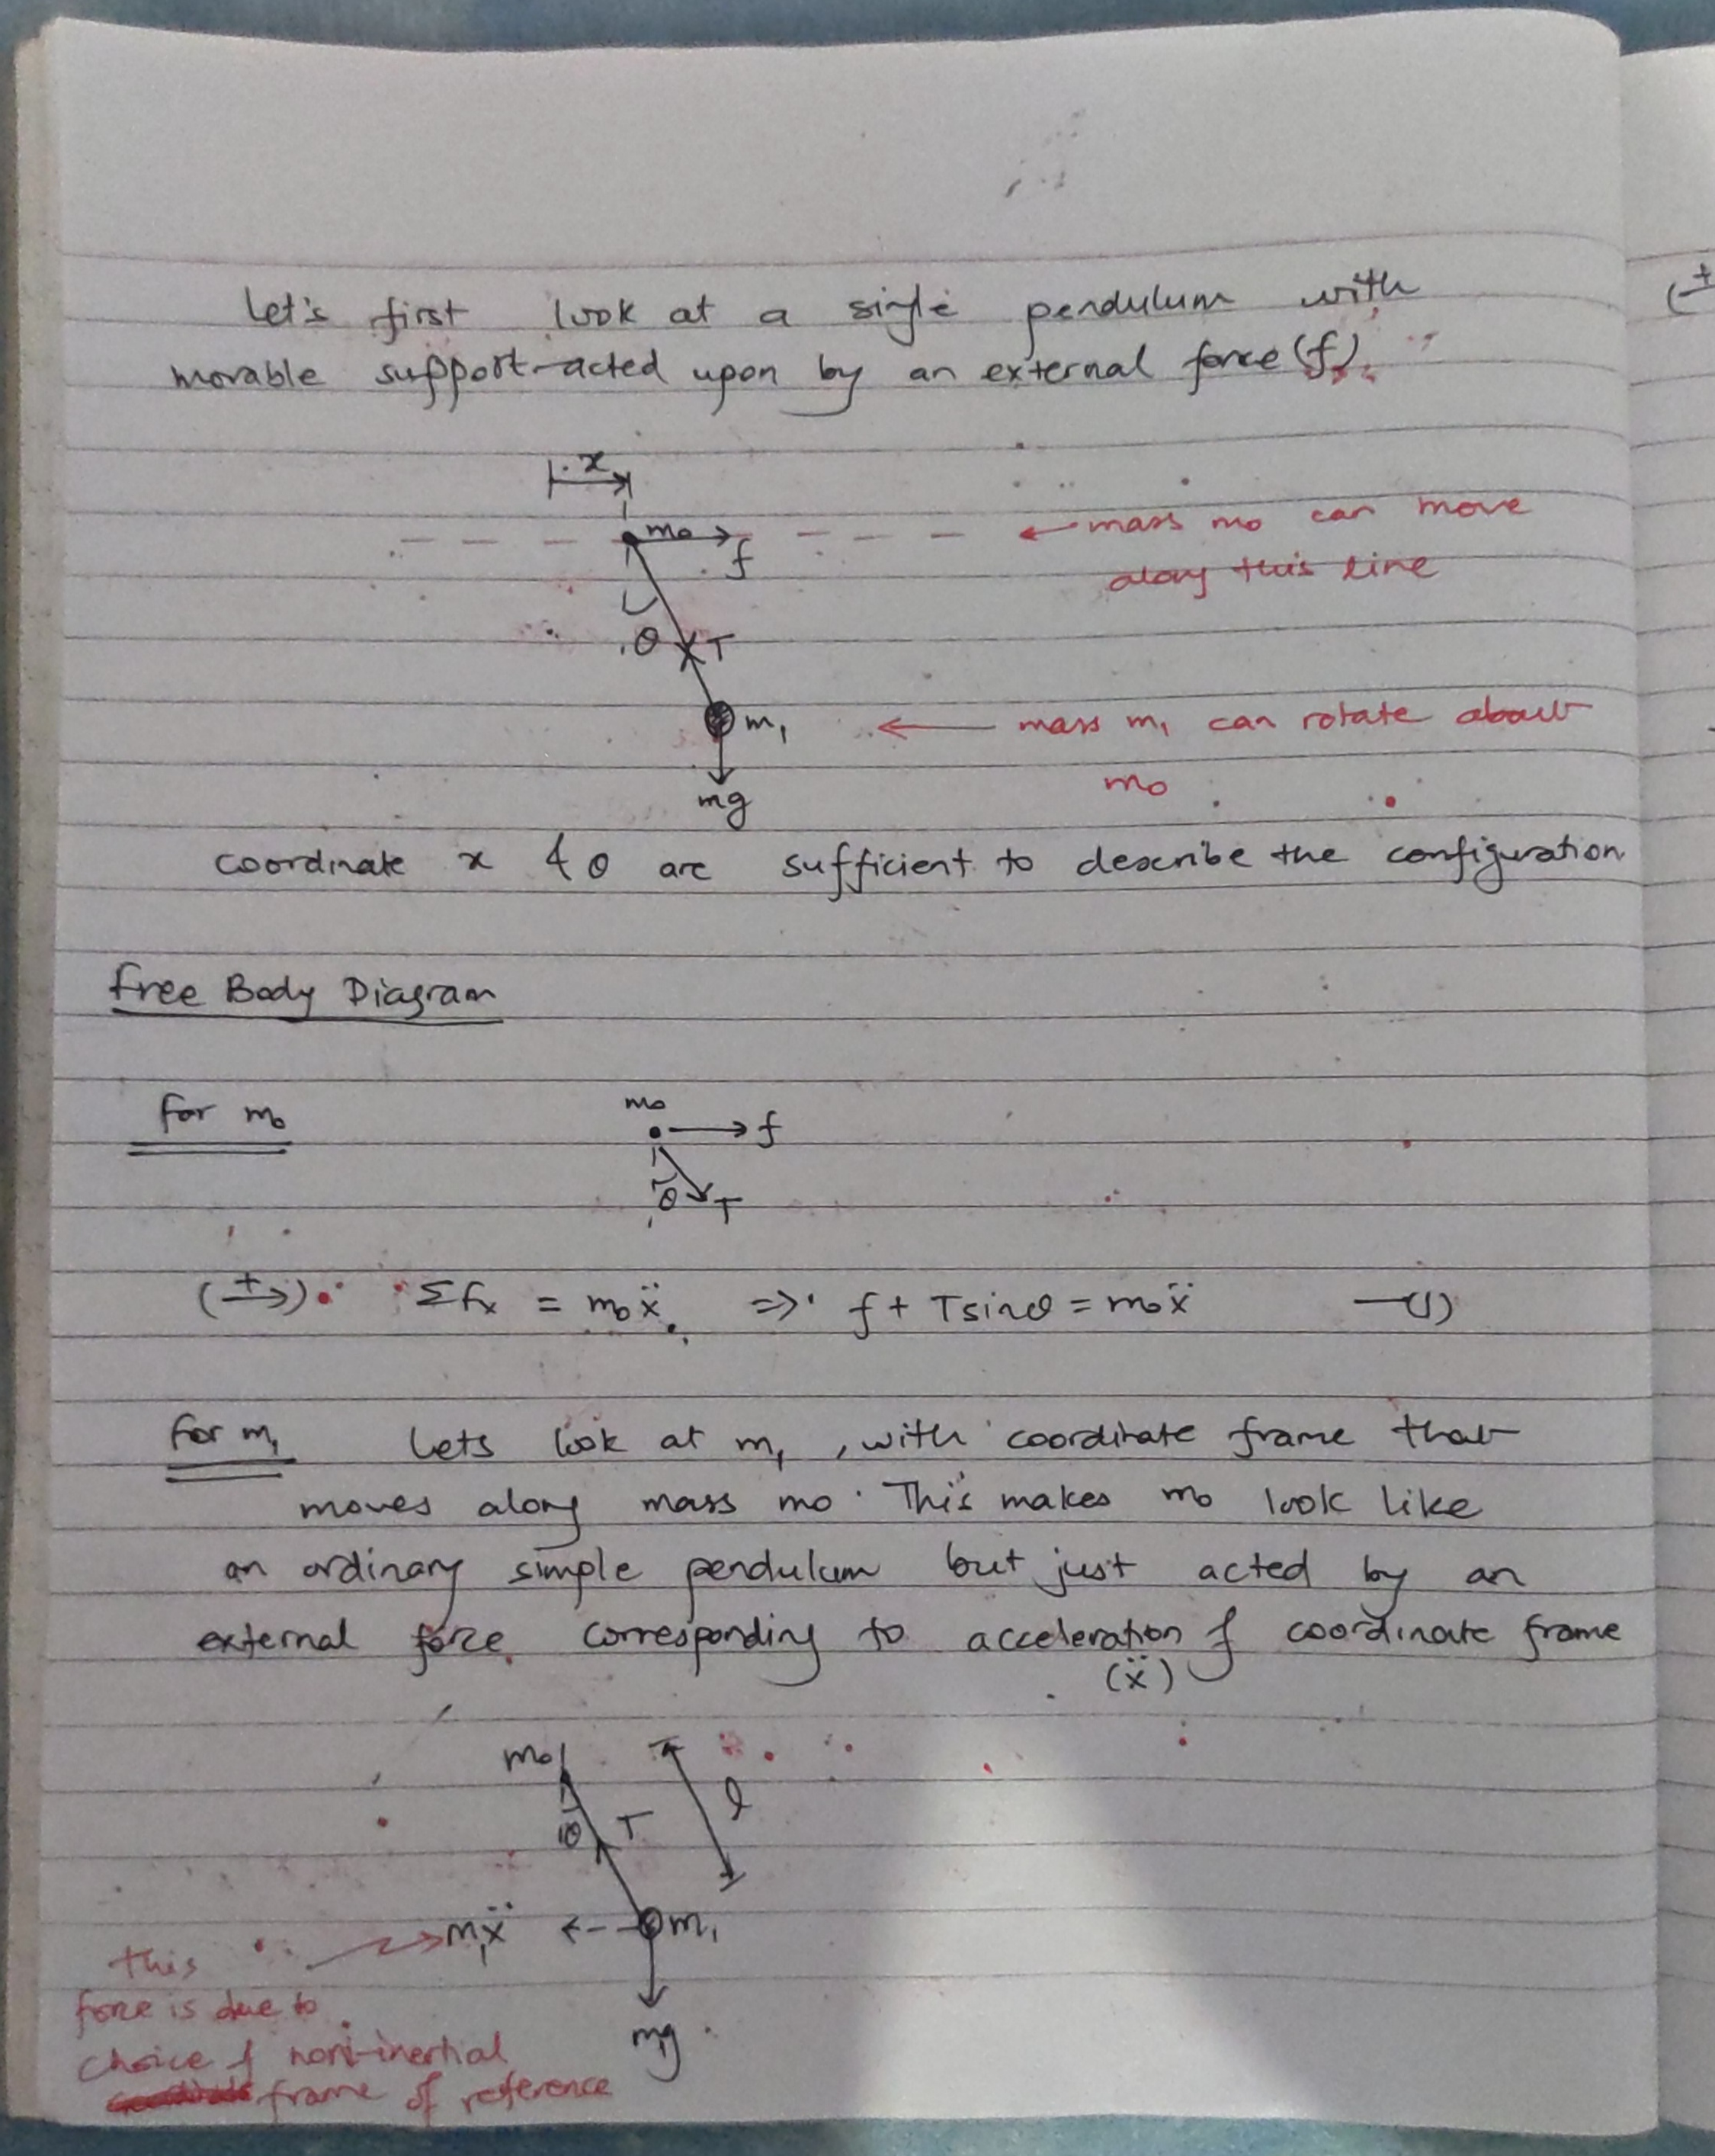 Let's first look at a single pendulum with
movable support acted upon by an external force (f).
x
m₀
f
← mass m₀ can move
along this line
θ
T
m₁
← mass m₁ can rotate about
m₀
mg
coordinate x & θ are sufficient to describe the configuration
Free Body Diagram
for m₀
m₀
f
θ
T
(+→) Σfₓ = m₀ẍ ⇒ f + Tsinθ = m₀ẍ —(1)
For m₁ Lets look at m₁, with coordinate frame that
moves along mass m₀. This makes m₀ look like
an ordinary simple pendulum but just acted by an
external force corresponding to acceleration of coordinate frame
(ẍ)
m₀
l
θ
T
m₁ẍ
m₁
m₁g
this
force is due to
choice of non-inertial
frame of reference
(+